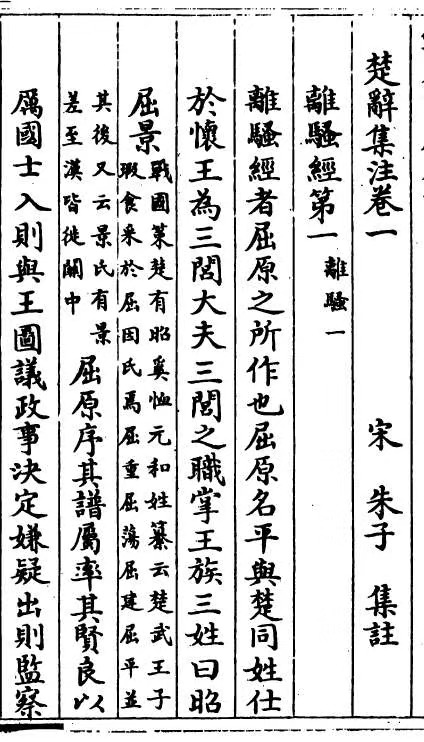 楚辭集注卷一 宋 朱子 集註
離騷經第一 離騷一
離騷經者屈原之所作也屈原名平與楚同姓仕
於懷王為三閭大夫三閭之職掌王族三姓曰昭
屈景 戰國策楚有昭奚恤元和姓纂云楚武王子
瑕食采於屈因氏焉屈重屈蕩屈建屈平並
其後又云景氏有景
差至漢皆徙關中 屈原序其譜屬率其賢良以
厲國士入則與王圖議政事決定嫌疑出則監察